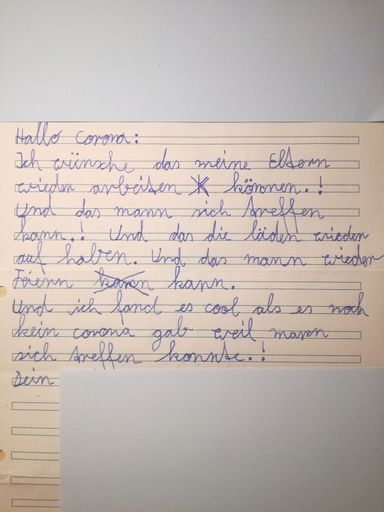 Hallo Corona:
Ich wünsche das meine Eltern
wieder arbeiten können.!
Und das mann sich treffen
kann.! Und das die läden wieder
auf haben. Und das mann wieder
Feienn kann.
Und ich fand es cool als es noch
kein corona gab weil mann
sich treffen konnte.!
Dein